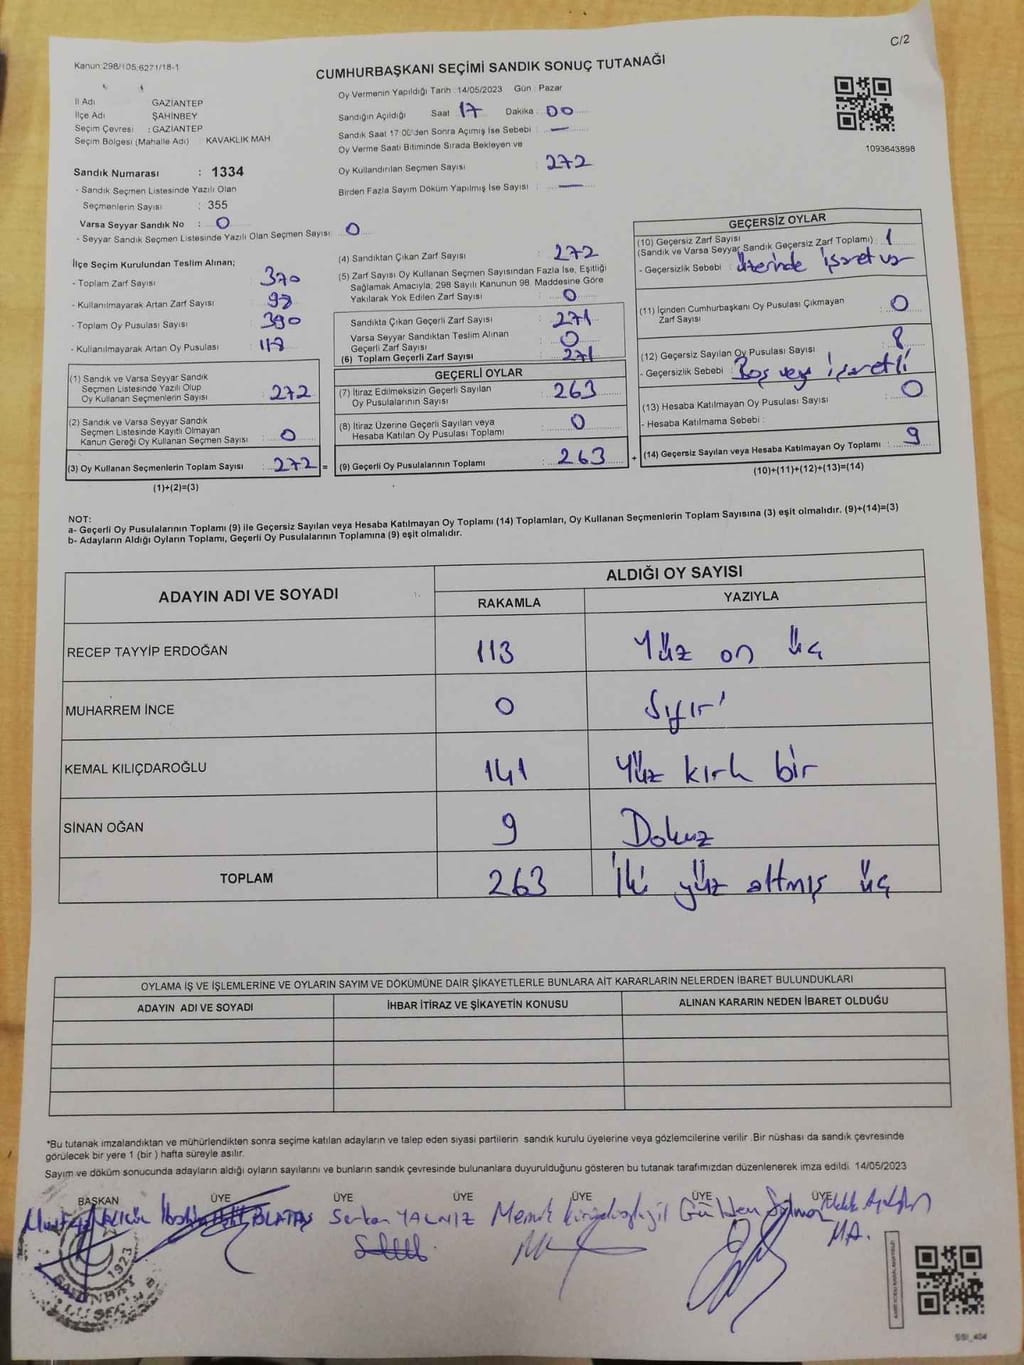 C/2
Kanun:298/105,6271/18-1
CUMHURBAŞKANI SEÇİMİ SANDIK SONUÇ TUTANAĞI
İl Adı GAZİANTEP
İlçe Adı ŞAHİNBEY
Seçim Çevresi : GAZİANTEP
Seçim Bölgesi (Mahalle Adı) KAVAKLIK MAH
Sandık Numarası : 1334
- Sandık Seçmen Listesinde Yazılı Olan
Seçmenlerin Sayısı : 355
Varsa Seyyar Sandık No : 0
- Seyyar Sandık Seçmen Listesinde Yazılı Olan Seçmen Sayısı 0
Oy Vermenin Yapıldığı Tarih :14/05/2023 Gün : Pazar
Sandığın Açıldığı Saat 17 Dakika 00
Sandık Saat 17:00'den Sonra Açımış İse Sebebi : —
Oy Verme Saati Bitiminde Sırada Bekleyen ve
Oy Kullandırılan Seçmen Sayısı : 272
Birden Fazla Sayım Döküm Yapılmış İse Sayısı : —
1093643898
İlçe Seçim Kurulundan Teslim Alınan;
- Toplam Zarf Sayısı 370
- Kullanılmayarak Artan Zarf Sayısı 98
- Toplam Oy Pusulası Sayısı 390
- Kullanılmayarak Artan Oy Pusulası 118
(1) Sandık ve Varsa Seyyar Sandık
Seçmen Listesinde Yazılı Olup
Oy Kullanan Seçmenlerin Sayısı : 272
(2) Sandık ve Varsa Seyyar Sandık
Seçmen Listesinde Kayıtlı Olmayan
Kanun Gereği Oy Kullanan Seçmen Sayısı : 0
(3) Oy Kullanan Seçmenlerin Toplam Sayısı : 272 =
(1)+(2)=(3)
(4) Sandıktan Çıkan Zarf Sayısı : 272
(5) Zarf Sayısı Oy Kullanan Seçmen Sayısından Fazla İse, Eşitliği
Sağlamak Amacıyla, 298 Sayılı Kanunun 98. Maddesine Göre
Yakılarak Yok Edilen Zarf Sayısı : 0
Sandıkta Çıkan Geçerli Zarf Sayısı : 271
Varsa Seyyar Sandıktan Teslim Alınan
Geçerli Zarf Sayısı : 0
(6) Toplam Geçerli Zarf Sayısı : 271
GEÇERLİ OYLAR
(7) İtiraz Edilmeksizin Geçerli Sayılan
Oy Pusulalarının Sayısı : 263
(8) İtiraz Üzerine Geçerli Sayılan veya
Hesaba Katılan Oy Pusulası Toplamı : 0
(9) Geçerli Oy Pusulalarının Toplamı : 263 +
GEÇERSİZ OYLAR
(10) Geçersiz Zarf Sayısı
(Sandık ve Varsa Seyyar Sandık Geçersiz Zarf Toplamı) : 1
- Geçersizlik Sebebi : üzerinde işaret var
(11) İçinden Cumhurbaşkanı Oy Pusulası Çıkmayan
Zarf Sayısı : 0
(12) Geçersiz Sayılan Oy Pusulası Sayısı : 8
- Geçersizlik Sebebi : Boş veya işaretli
(13) Hesaba Katılmayan Oy Pusulası Sayısı : 0
- Hesaba Katılmama Sebebi :
(14) Geçersiz Sayılan veya Hesaba Katılmayan Oy Toplamı : 9
(10)+(11)+(12)+(13)=(14)
NOT:
a- Geçerli Oy Pusulalarının Toplamı (9) ile Geçersiz Sayılan veya Hesaba Katılmayan Oy Toplamı (14) Toplamları, Oy Kullanan Seçmenlerin Toplam Sayısına (3) eşit olmalıdır. (9)+(14)=(3)
b- Adayların Aldığı Oyların Toplamı, Geçerli Oy Pusulalarının Toplamına (9) eşit olmalıdır.
ADAYIN ADI VE SOYADI ALDIĞI OY SAYISI
RAKAMLA YAZIYLA
RECEP TAYYİP ERDOĞAN 113 Yüz on üç
MUHARREM İNCE 0 Sıfır
KEMAL KILIÇDAROĞLU 141 Yüz kırk bir
SİNAN OĞAN 9 Dokuz
TOPLAM 263 İki yüz altmış üç
OYLAMA İŞ VE İŞLEMLERİNE VE OYLARIN SAYIM VE DÖKÜMÜNE DAİR ŞİKAYETLERLE BUNLARA AİT KARARLARIN NELERDEN İBARET BULUNDUKLARI
ADAYIN ADI VE SOYADI İHBAR İTİRAZ VE ŞİKAYETİN KONUSU ALINAN KARARIN NEDEN İBARET OLDUĞU
*Bu tutanak imzalandıktan ve mühürlendikten sonra seçime katılan adayların ve talep eden siyasi partilerin sandık kurulu üyelerine veya gözlemcilerine verilir. Bir nüshası da sandık çevresinde
görülecek bir yere 1 (bir) hafta süreyle asılır.
Sayım ve döküm sonucunda adayların aldığı oyların sayılarını ve bunların sandık çevresinde bulunanlara duyurulduğunu gösteren bu tutanak tarafımızdan düzenlenerek imza edildi. 14/05/2023
BAŞKAN ÜYE ÜYE ÜYE ÜYE ÜYE ÜYE
Serkan YALNIZ Gülden
M.A.
1923
SSI_404